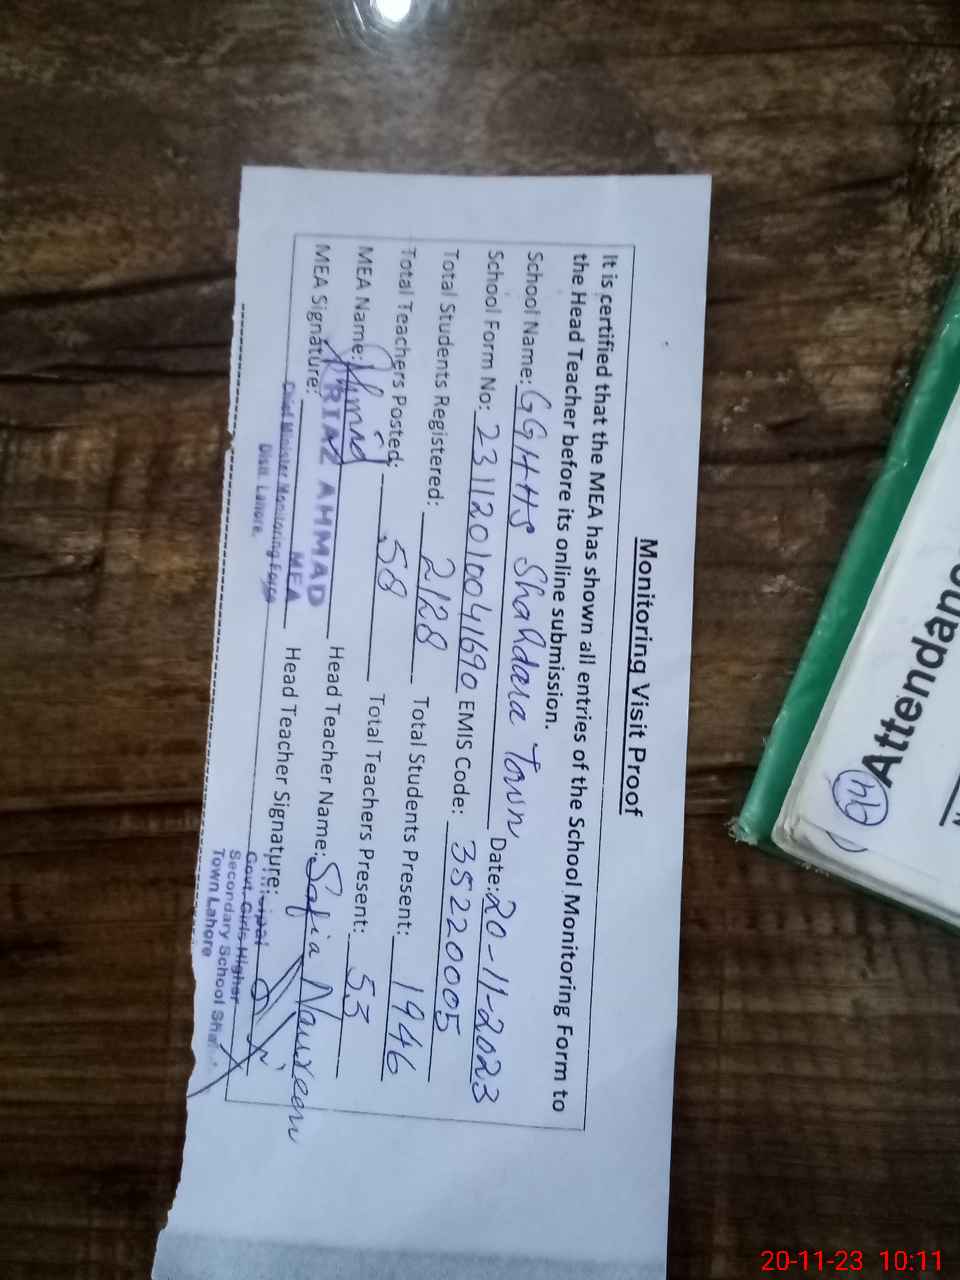 Monitoring Visit Proof
It is certified that the MEA has shown all entries of the School Monitoring Form to
the Head Teacher before its online submission.
School Name: GGHHS Shahdara Town Date: 20-11-2023
School Form No: 231120100041690 EMIS Code: 35220005
Total Students Registered: 2128 Total Students Present: 1946
Total Teachers Posted: 58 Total Teachers Present: 53
MEA Name: Head Teacher Name: Safia Nawreen
MEA Signature: Head Teacher Signature:
RIAZ AHMAD
MEA
Chief Minister Monitoring Force
Distt Lahore.
Principal
Govt. Girls Higher
Secondary School
Town Lahore
Attendance
20-11-23 10:11